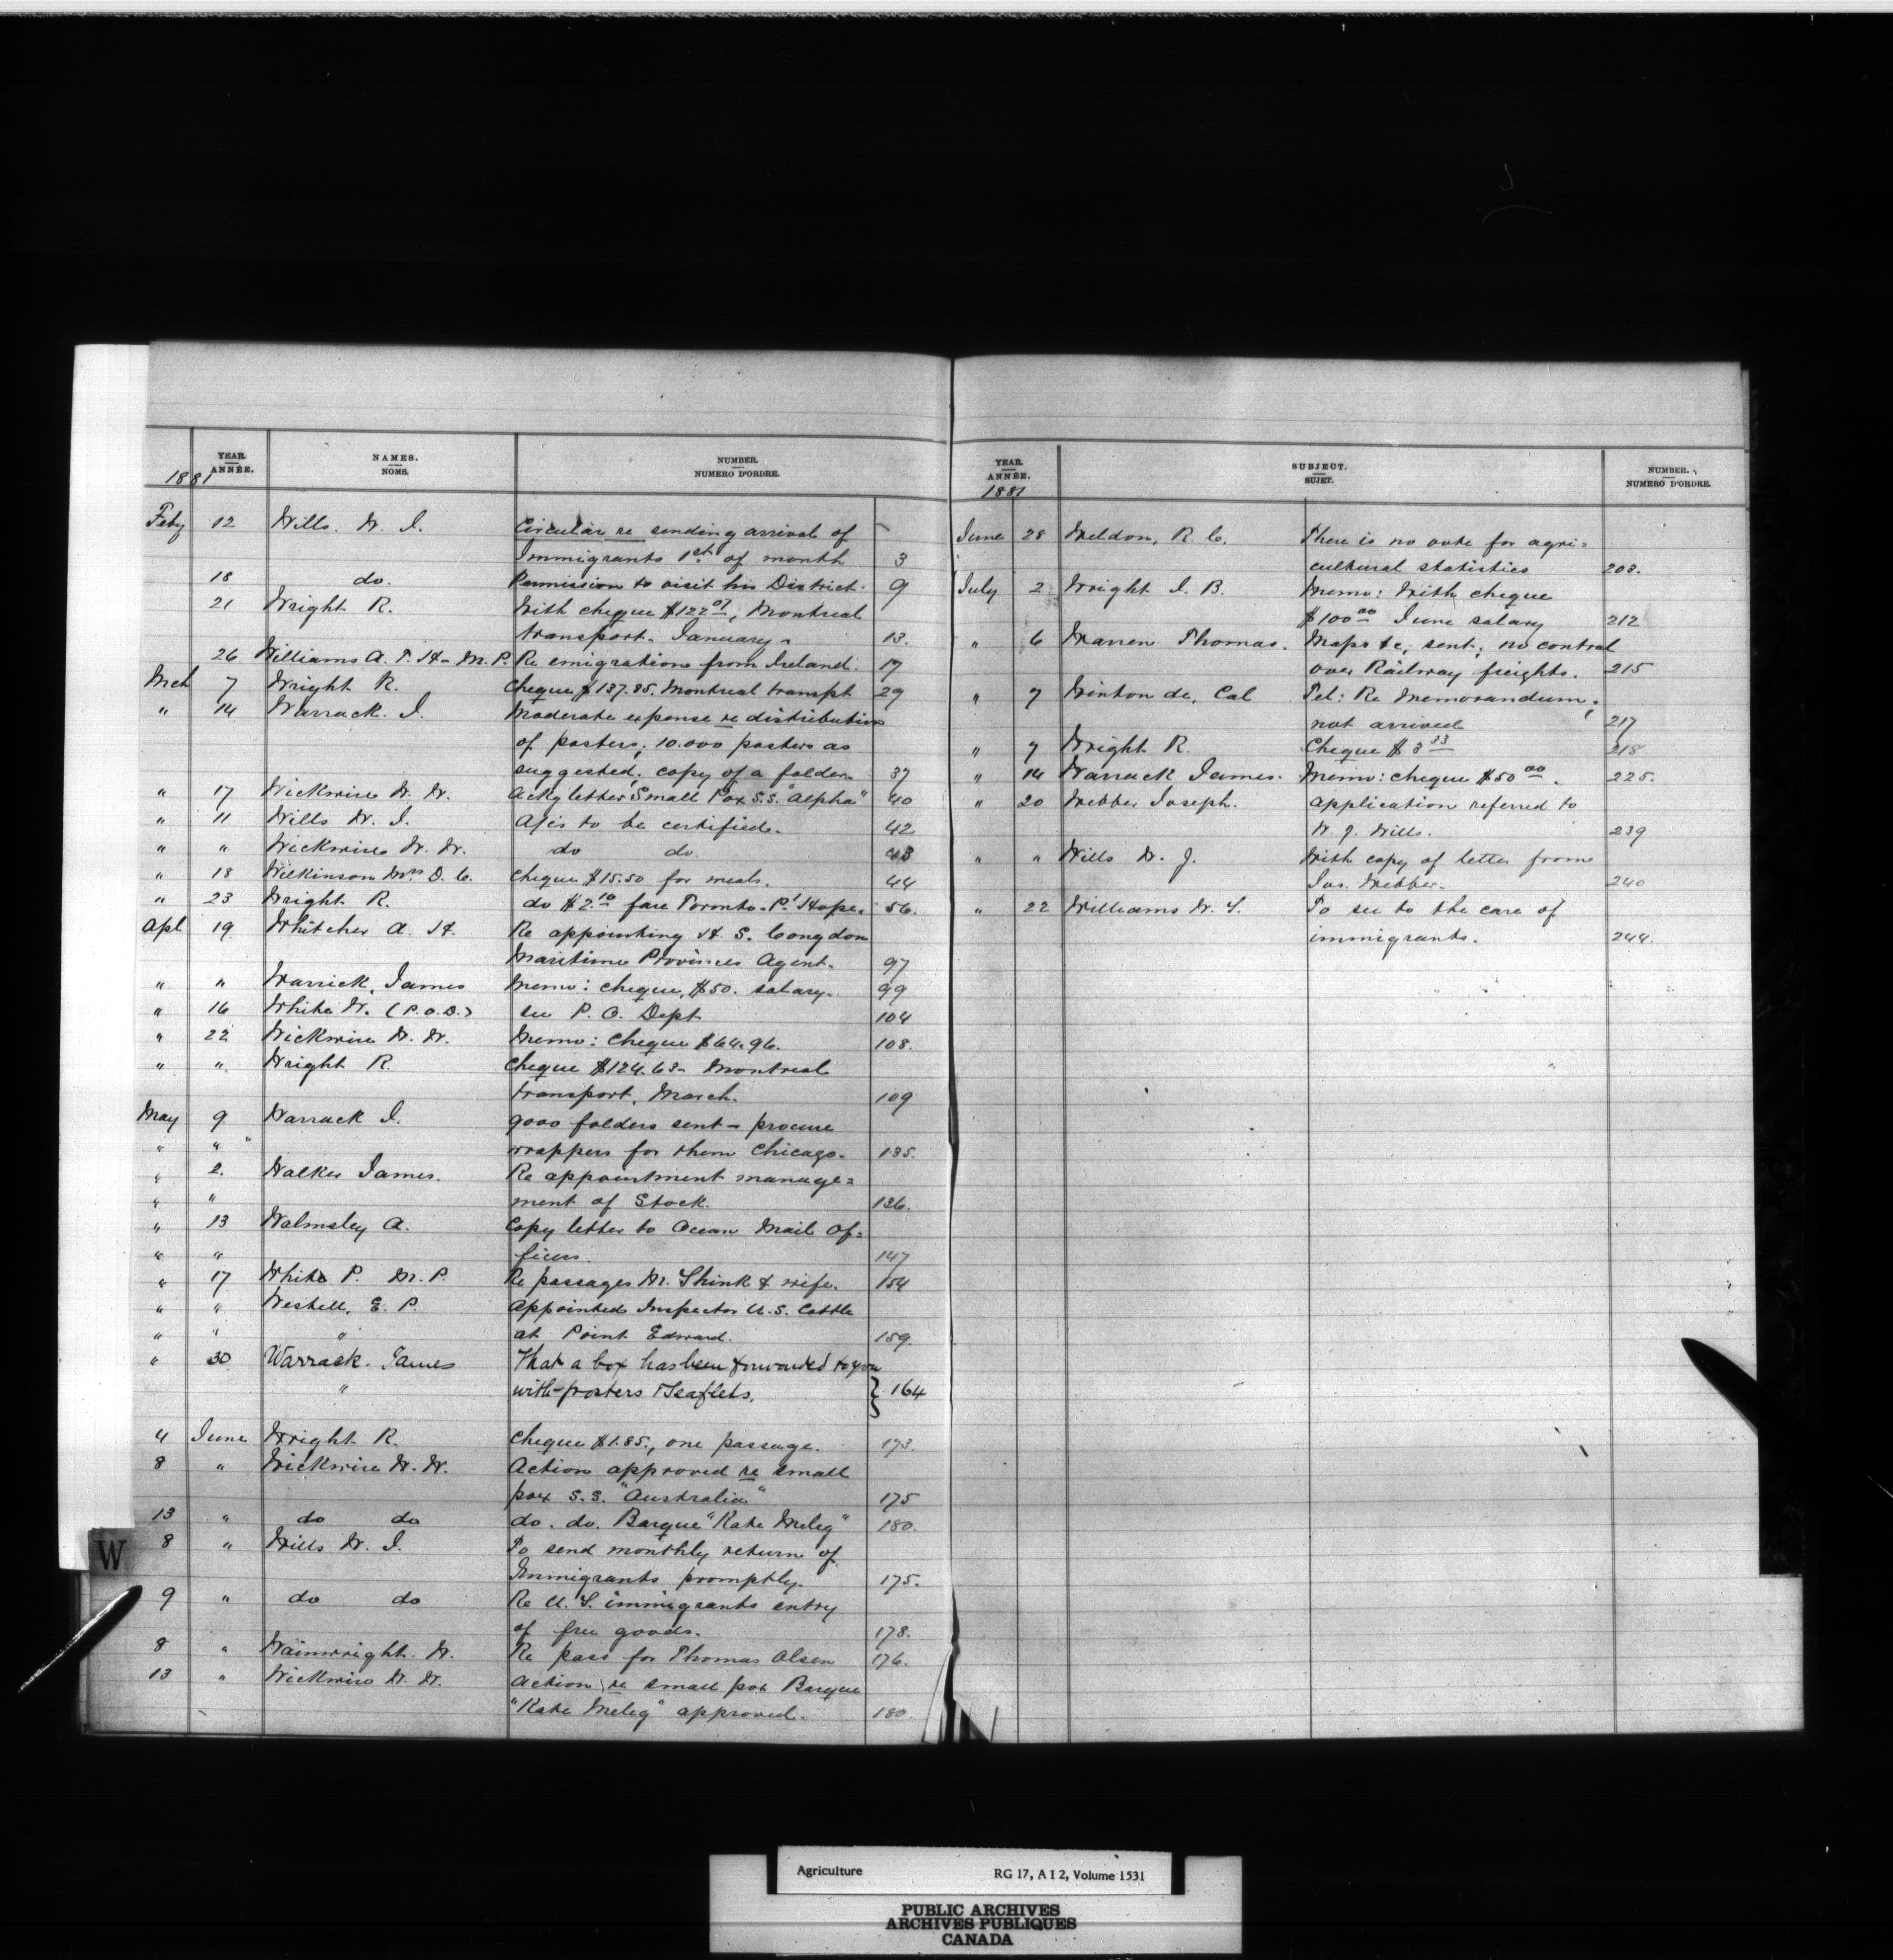 YEAR. NAMES. NUMBER.
ANNÉE. NOMS. NUMERO D'ORDRE.
1881
Feby 12 Wills. W. I. Circular re sending arrival of
Immigrants 1st of month 3
18 do. Permission to visit his District. 9
21 Wright R. With cheque $122.07, Montreal
transport. January. 13.
26 Williams A. T. H. M.P. Re emigration from Ireland. 17
Mch 7 Wright R. Cheque $137.85. Montreal transpt 29
" 14 Warrack. I. Moderate expense re distribution
of posters; 10.000 posters as
suggested. copy of a folder. 37
" 17 Wickwire W. W. Ackg letter Small Pox S.S. "Alpha" 40
" 11 Wills W. I. A/cs to be certified. 42
" " Wickwire W. W. do do 43
" 18 Wilkinson Mrs D. C. Cheque $15.50 for meals. 44
" 23 Wright R. do $2.10 fare Toronto. Pt Hope. 56.
Apl 19 Whitcher A. H. Re appointing H. S. Congdon
Maritime Provinces Agent. 97
" " Warrick, James Memo: cheque, $50. salary. 99
" 16 White W. (P.O.D.) see P. O. Dept 104
" 22 Wickwire W. W. Memo: Cheque $64.96. 108.
" " Wright R. Cheque $124.63 - Montreal
transport, March. 109
May 9 Warrack I. 9000 folders sent - procure
" " " wrappers for them Chicago. 135.
" 2. Walker James. Re appointment manage=
" " ment of Stock. 136.
" 13 Walmsley A. Copy letter to Ocean Mail Of=
" " ficers. 147
" 17 White P. M.P. Re passages M. Shink & wife. 154
" " Westell, E. P. Appointed Inspector U.S. Cattle
" " " at Point Edward. 159.
" 30 Warrack. James That a box has been forwarded to you
" with posters & leaflets. } 164
4 June Wright R. Cheque $1.85., one passage. 173.
8 " Wickwire W. W. Action approved re small
pox S.S. "Australia" 175
13 " do do do. do. Barque "Kate Meleg" 180.
W
8 " Wills W. I. To send monthly return of
Immigrants promptly. 175.
9 " do do Re U.S. immigrants entry
of free goods. 178.
8 " Wainwright. W. Re pass for Thomas Olsen 176.
13 " Wickwire W. W. Action re small pox Barque
"Kate Meleg" approved. 180.
YEAR. SUBJECT. NUMBER.
ANNÉE. SUJET. NUMERO D'ORDRE.
1881
June 28 Weldon, R. C. There is no vote for agri=
cultural statistics 203.
July 2 Wright I. B. Memo: With cheque
$100.00 June salary 212
" 6 Warren Thomas. Maps &c; sent; no control
over Railway freights. 215
" 7 Winton de, Col Tel: Re Memorandum;
not arrived 217
" 7 Wright R. Cheque $3.33 218
" 14 Warrack James. Memo: cheque $50.00. 225.
" 20 Webber Joseph. Application referred to
W. J. Wills. 239
" " Wills W. J. With copy of letter from
Jos. Webber. 240
" 22 Williams W. S. To see to the care of
immigrants. 244.
Agriculture RG 17, A I 2, Volume 1531
PUBLIC ARCHIVES
ARCHIVES PUBLIQUES
CANADA